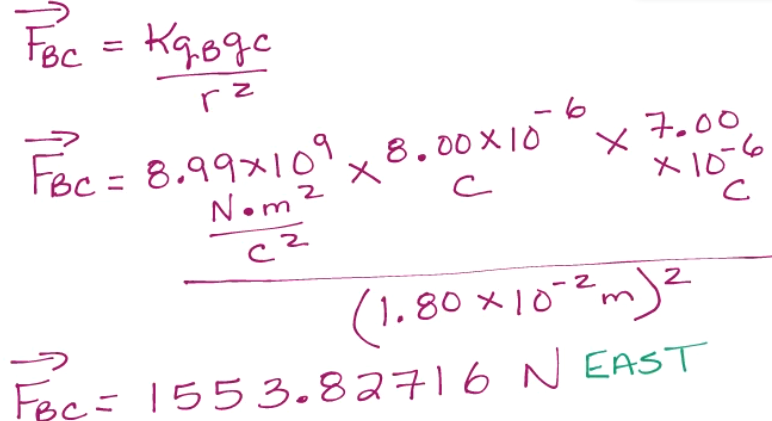 F⃗BC = KqBqC
r²
F⃗BC = 8.99×10⁹ N•m²/C² × 8.00×10⁻⁶ C × 7.00 ×10⁻⁶ C
(1.80×10⁻²m)²
F⃗BC = 1553.82716 N EAST